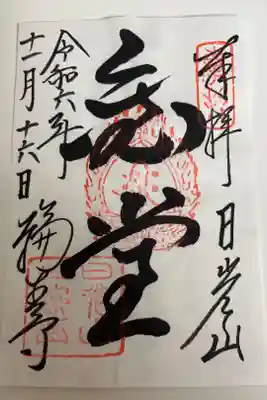 奉拝 日光山
金堂
令和六年
十一月十六日 輪王寺